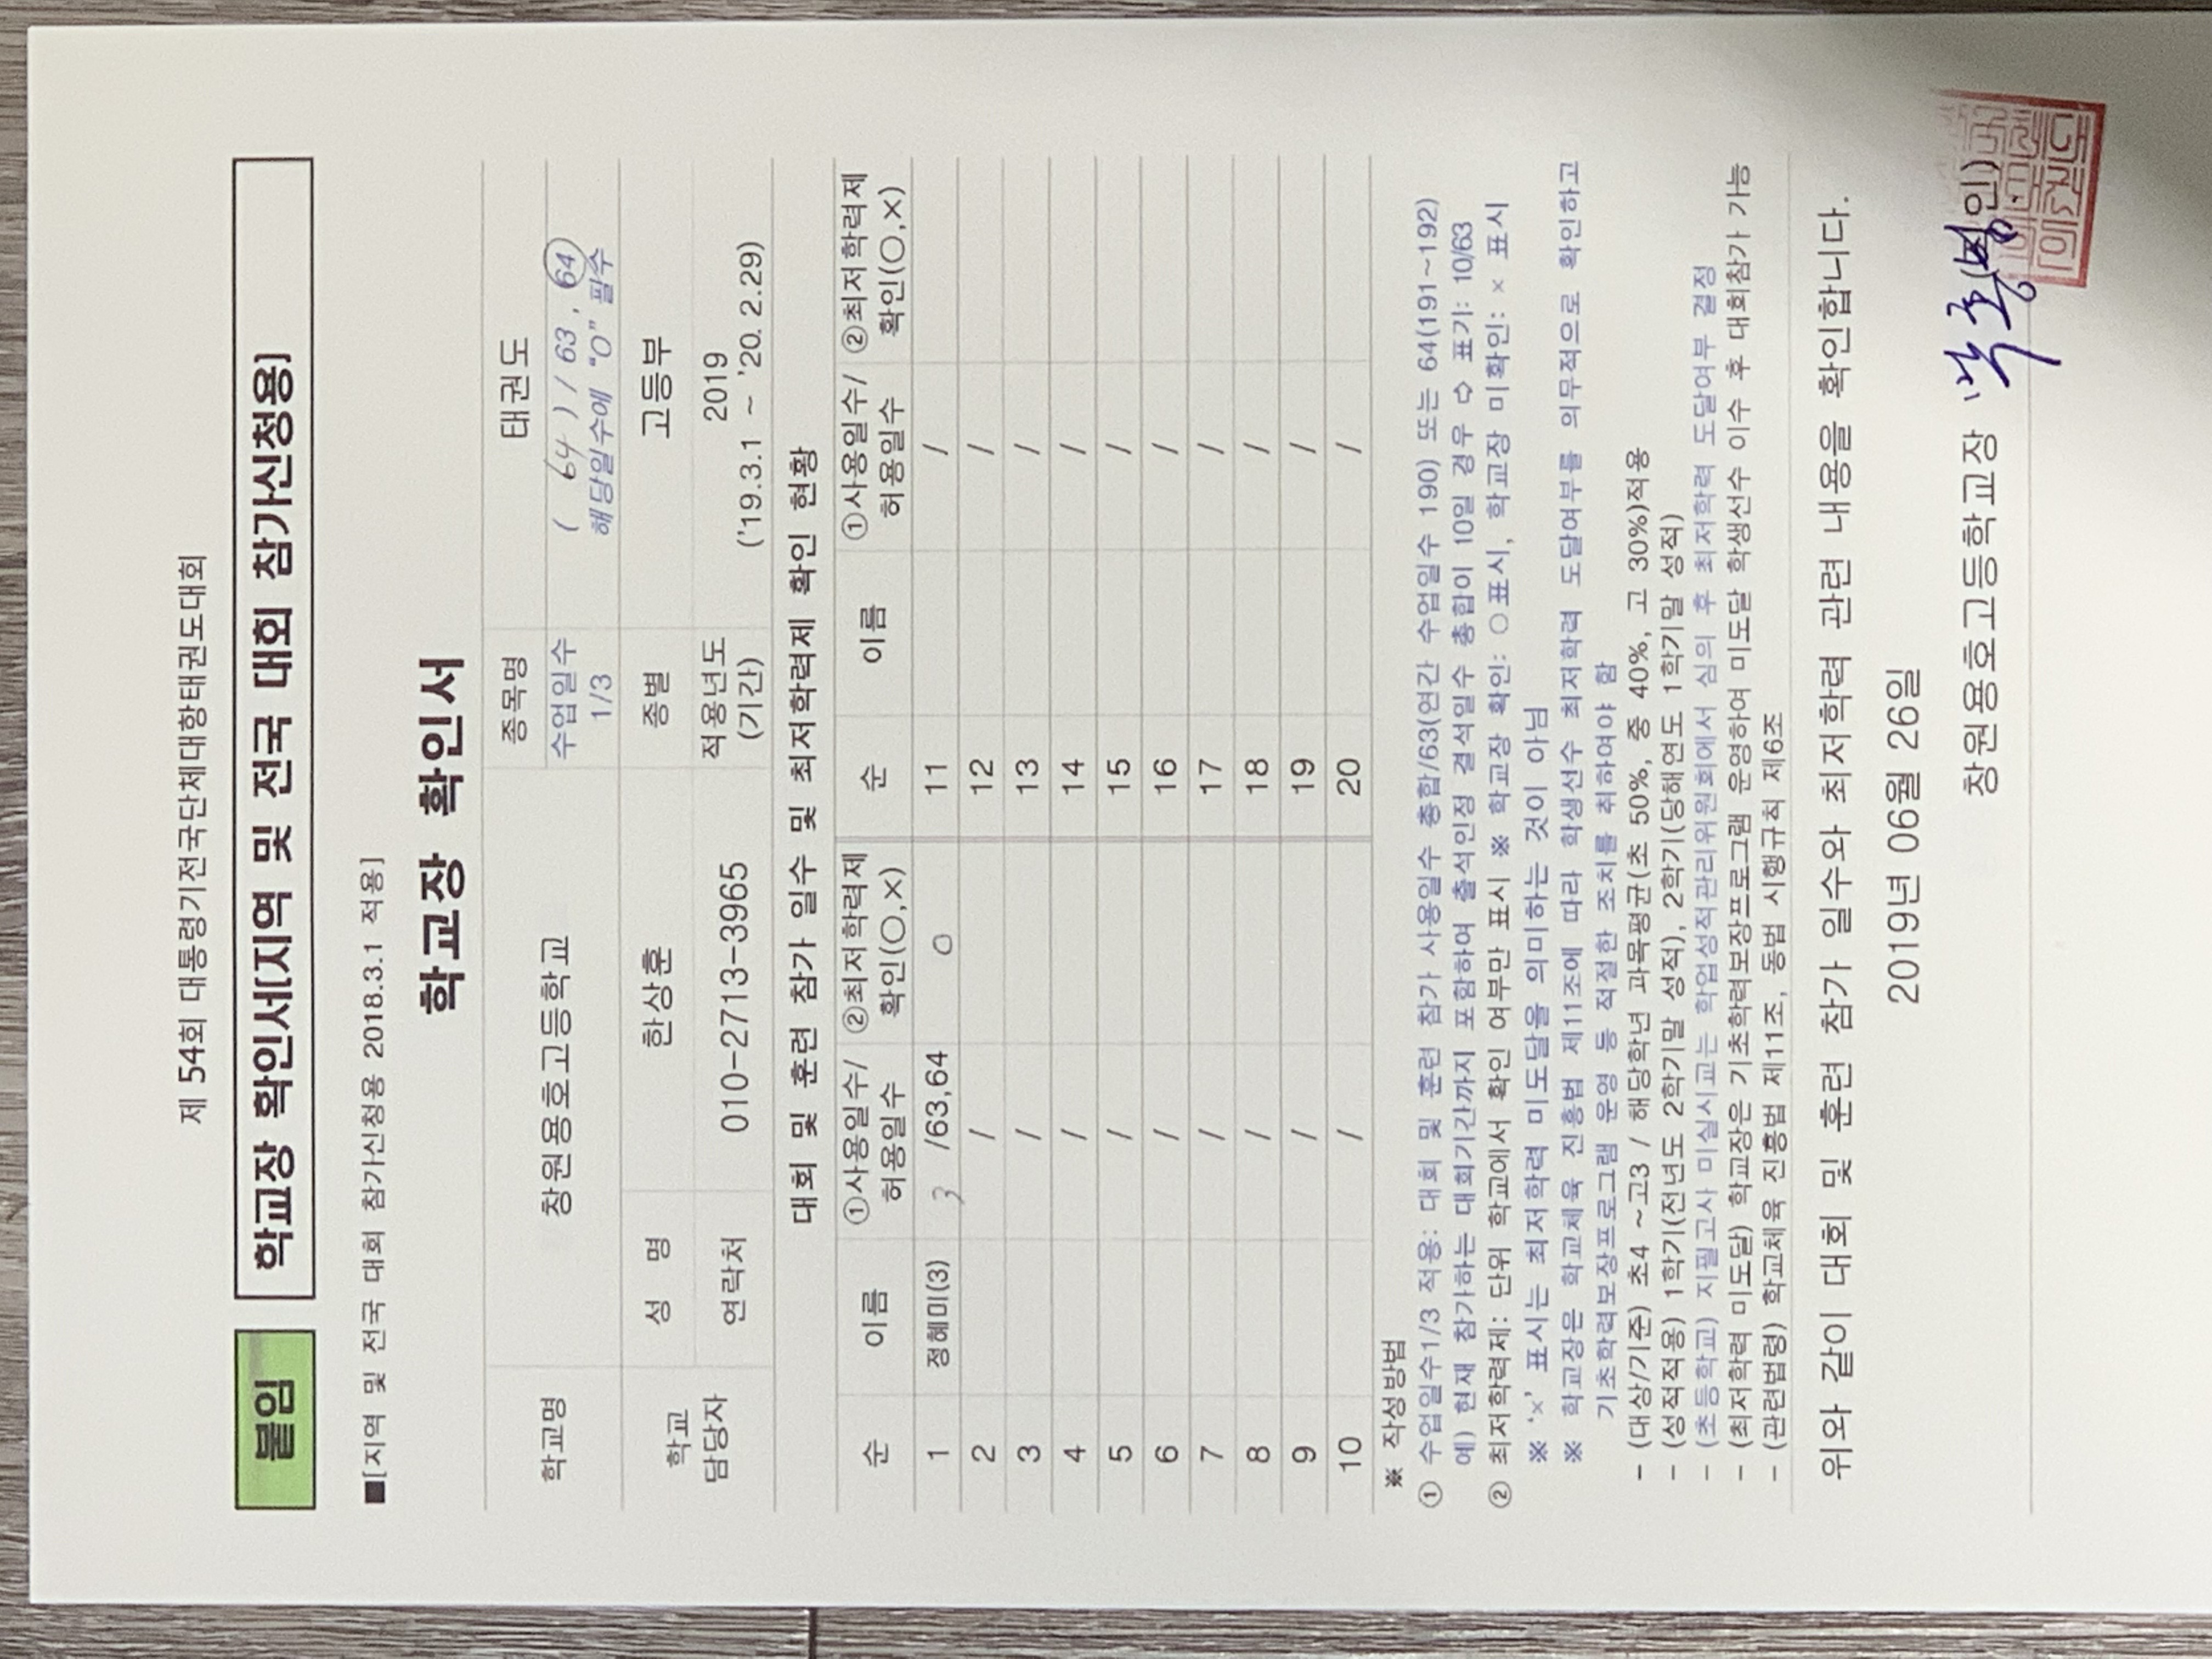 제 54회 대통령기전국단체대항태권도대회
붙임 학교장 확인서(지역 및 전국 대회 참가신청용)
■[지역 및 전국 대회 참가신청용 2018.3.1 적용]
학교장 확인서
학교명 창원용호고등학교 종목명 태권도
수업일수 1/3 ( 64 ) / 63 , 64
해당일수에 "O" 필수
학교 담당자 성 명 한상훈 종별 고등부
연락처 010-2713-3965 적용년도 (기간) 2019
('19.3.1 ~ '20. 2.29)
대회 및 훈련 참가 일수 및 최저학력제 확인 현황
순 이름 ①사용일수/허용일수 ②최저학력제 확인(○,×) 순 이름 ①사용일수/허용일수 ②최저학력제 확인(○,×)
1 정혜미(3) 3 /63,64 O 11 /
2 / 12 /
3 / 13 /
4 / 14 /
5 / 15 /
6 / 16 /
7 / 17 /
8 / 18 /
9 / 19 /
10 / 20 /
※ 작성방법
① 수업일수1/3 적용: 대회 및 훈련 참가 사용일수 총합/63(연간 수업일수 190) 또는 64(191~192)
예) 현재 참가하는 대회기간까지 포함하여 출석인정 결석일수 총합이 10일 경우 ⇨ 표기: 10/63
② 최저학력제: 단위 학교에서 확인 여부만 표시 ※ 학교장 확인: ○표시, 학교장 미확인: × 표시
※ '×' 표시는 최저학력 미도달을 의미하는 것이 아님
※ 학교장은 학교체육 진흥법 제11조에 따라 학생선수 최저학력 도달여부를 의무적으로 확인하고
기초학력보장프로그램 운영 등 적절한 조치를 취하여야 함
- (대상/기준) 초4 ~고3 / 해당학년 과목평균(초 50%, 중 40%, 고 30%)적용
- (성적적용) 1학기(전년도 2학기말 성적), 2학기(당해연도 1학기말 성적)
- (초등학교) 지필고사 미실시교는 학업성적관리위원회에서 심의 후 최저학력 도달여부 결정
- (최저학력 미도달) 학교장은 기초학력보장프로그램 운영하여 미도달 학생선수 이수 후 대회참가 가능
- (관련법령) 학교체육 진흥법 제11조, 동법 시행규칙 제6조
위와 같이 대회 및 훈련 참가 일수와 최저학력 관련 내용을 확인합니다.
2019년 06월 26일
창원용호고등학교장 (인)